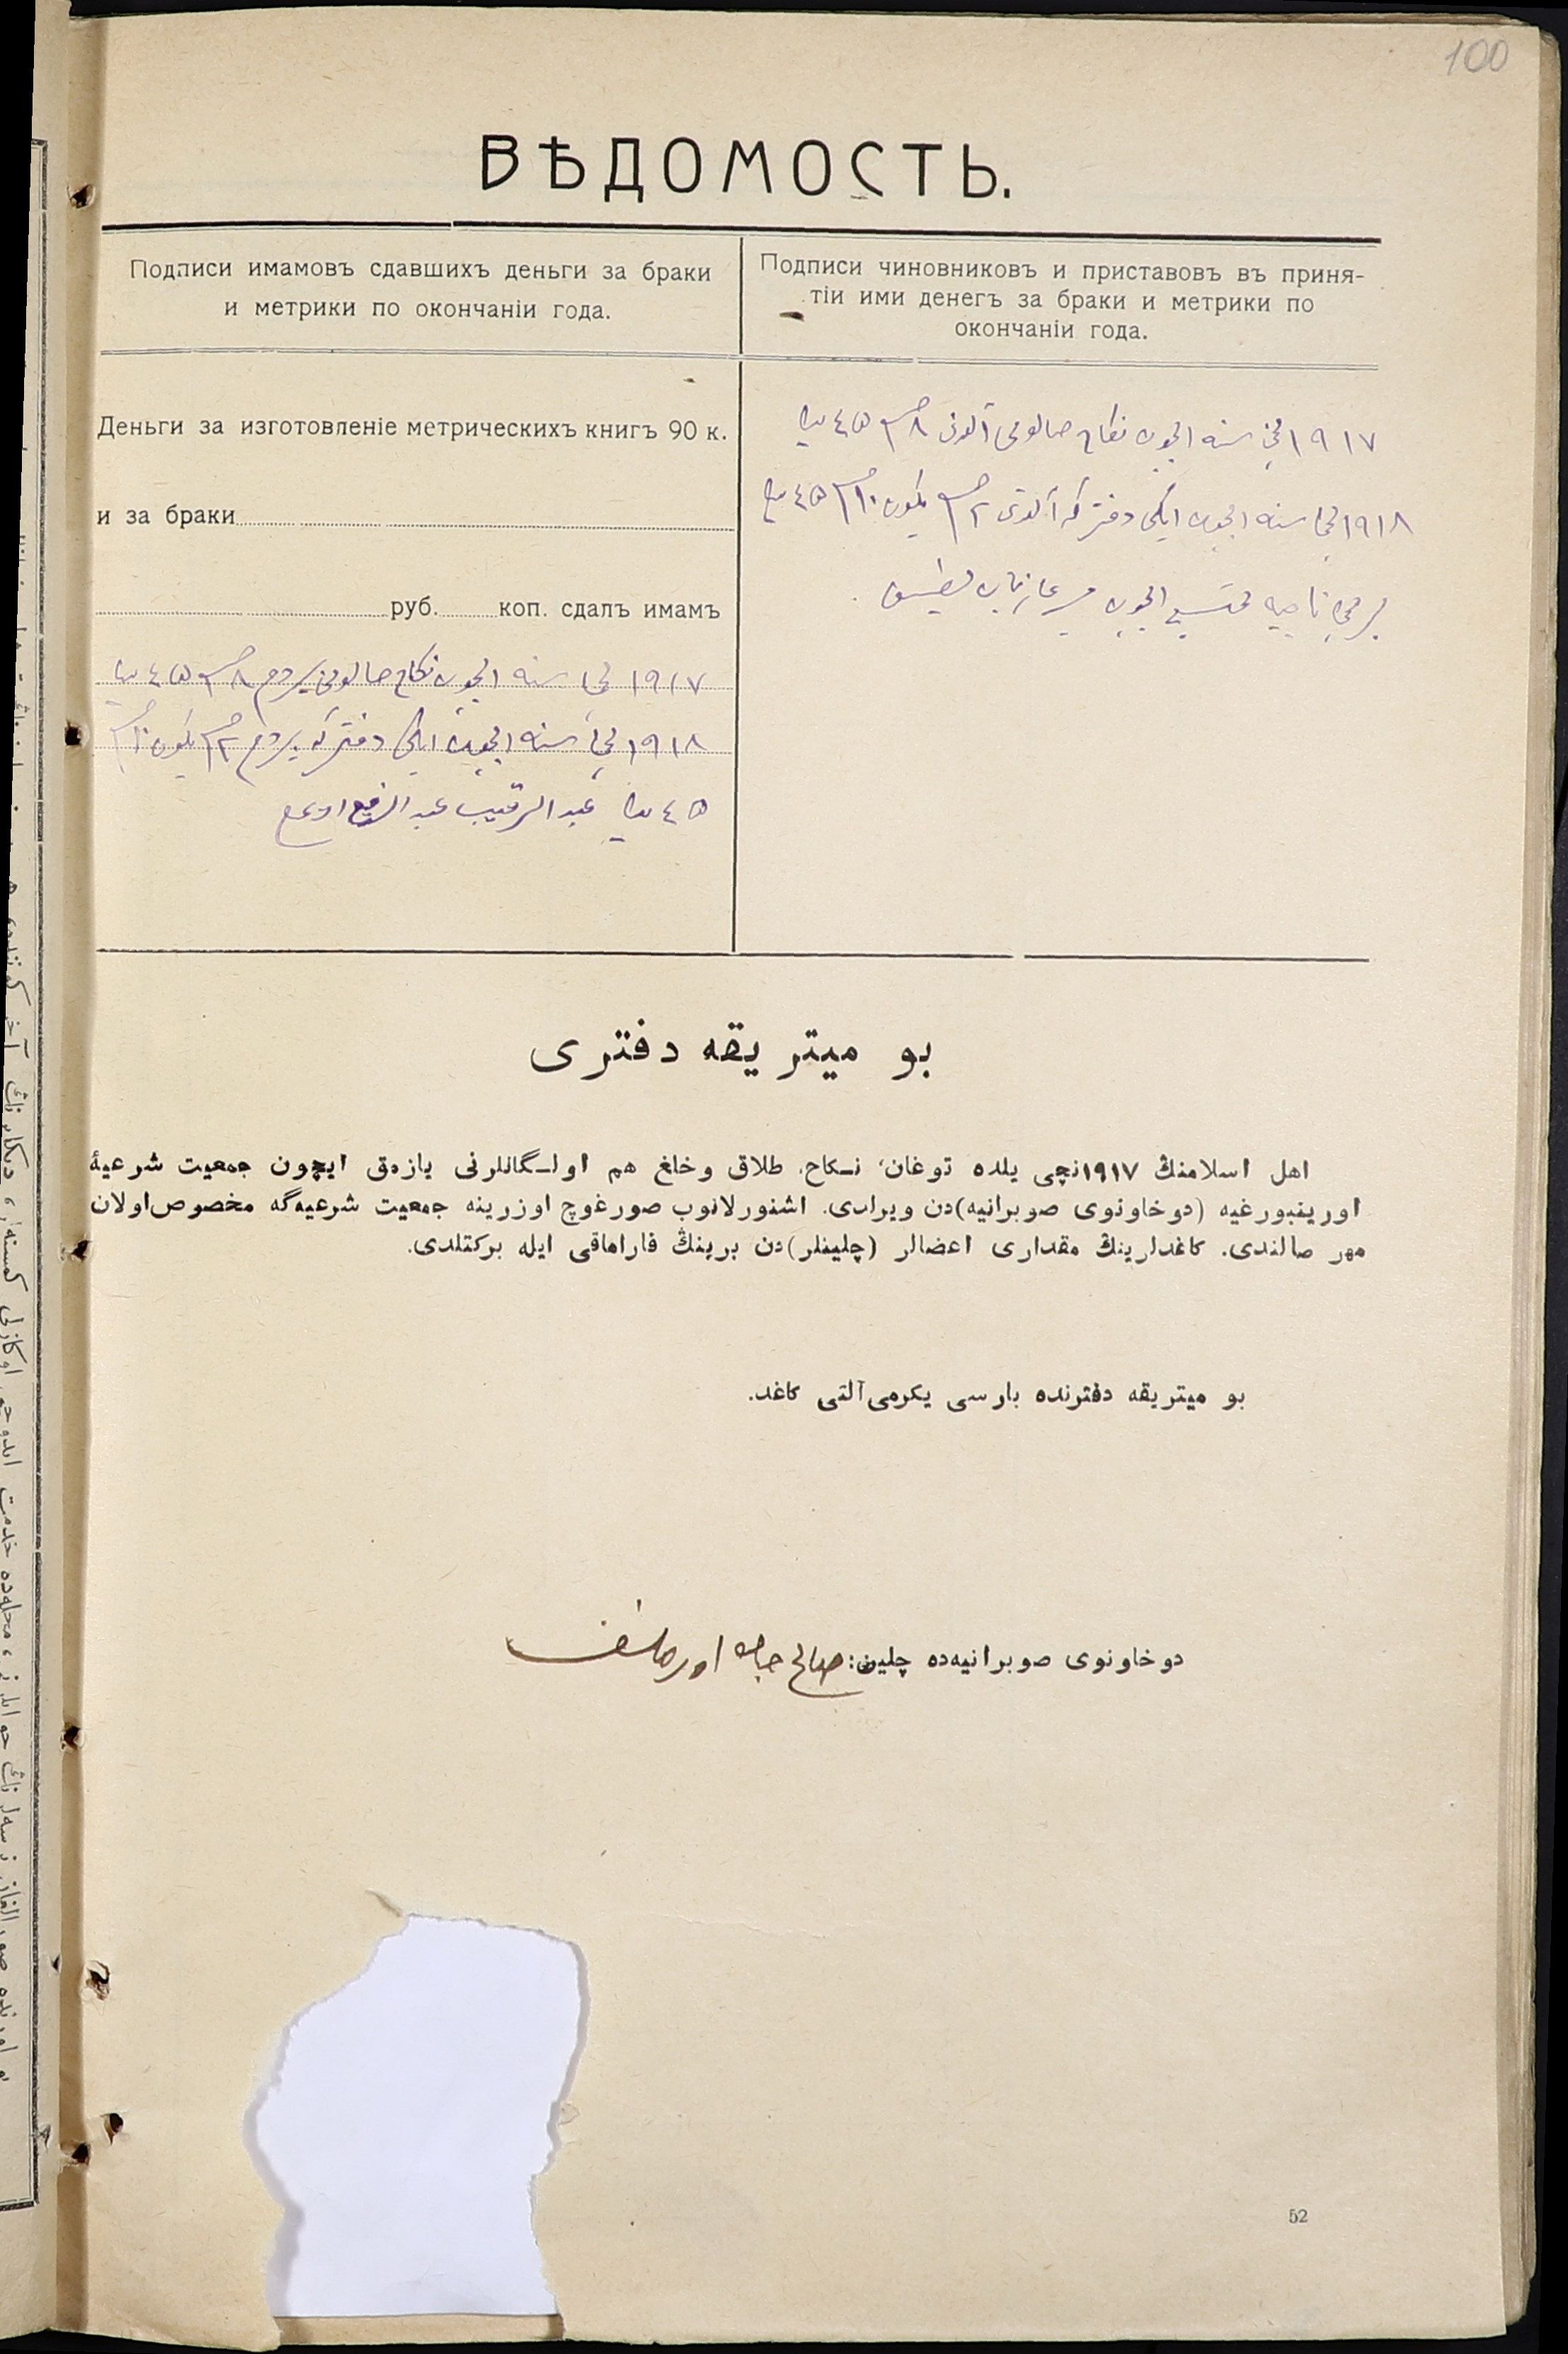 100
ВѢДОМОСТЬ.
Подписи имамовъ сдавшихъ деньги за браки
и метрики по окончаніи года.
Подписи чиновниковъ и приставовъ въ приня-
тіи ими денегъ за браки и метрики по
окончаніи года.
Деньги за изготовленіе метрическихъ книгъ 90 к.
и за браки
руб. коп. сдалъ имамъ
١٩١٧ نچی سنه ایچون نكاح صالومی بیردم ٨ ٤٥
١٩١٨ نچی سنه ایچون ایكی دفترگه بیردم ٢ یكون ١٠
٤٥ عبد الرقیب عبد الرفیع
١٩١٧ نچی سنه ایچون نكاح صالومی آلدی ٨ ٤٥
١٩١٨ نچی سنه ایچون ایكی دفترگه آلدی ٢ یكون ١٠ ٤٥
برنچی ناحیه محتسبی ایچون
بو میتریقه دفتری
اهل اسلامنڭ ١٩١٧نچی یلده توغان، نـكاح، طلاق وخلغ هم اولـگانلرنی یازمق ایچون جمعیت شرعیهٔ
اورینبورغیه (دوخاونوی صوبرانیه)دن ویرلدی. اشنورلانوب صورغوچ اوزرینه جمعیت شرعیه‌گه مخصوص اولان
مهر صالندی. كاغدلرینڭ مقداری اعضالر (چلینلر)دن برینڭ قاراماقی ایله بركتلدی.
بو میتریقه دفترنده بارسی یكرمی آلتی كاغد.
دوخاونوی صوبرانیه‌ده چلین: صالح جان
52